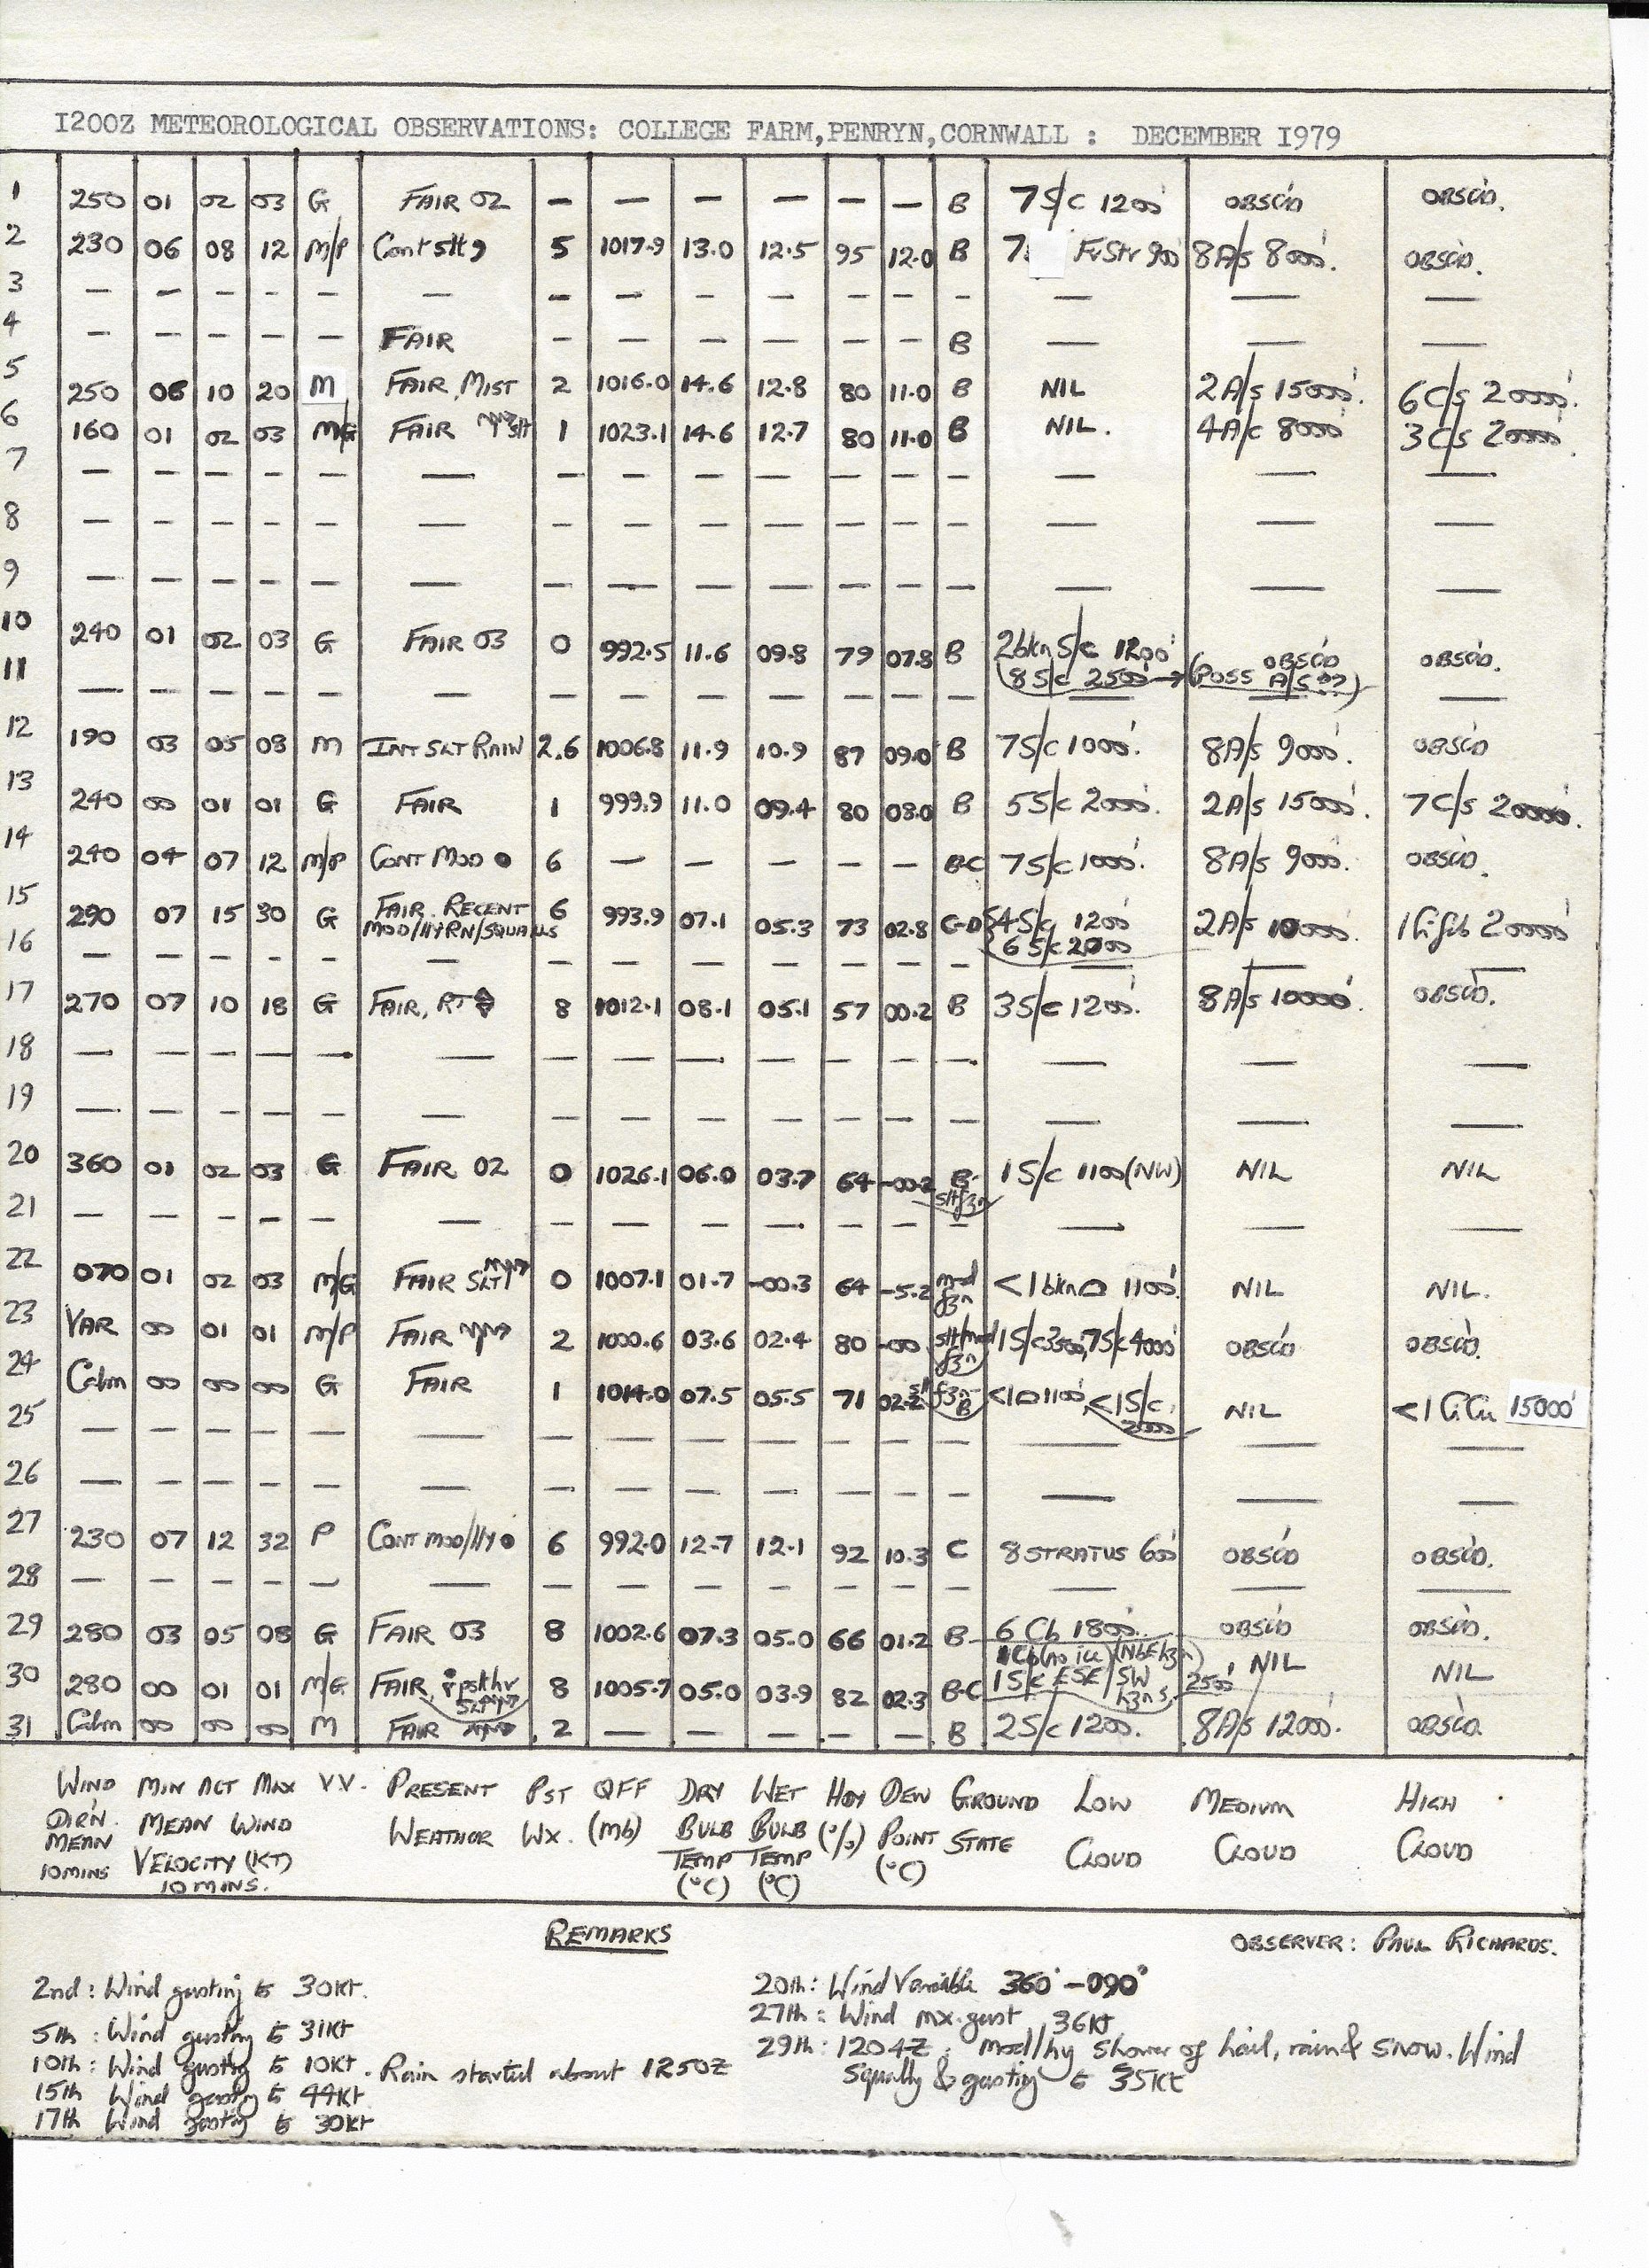 1200Z METEOROLOGICAL OBSERVATIONS: COLLEGE FARM,PENRYN,CORNWALL : DECEMBER 1979
1 250 01 02 03 G FAIR 02 — — — — — — B 7S/c 1200' OBSC'D OBSC'D.
2 230 06 08 12 M/P Cont slt 9 5 1017.9 13.0 12.5 95 12.0 B 7 FrStr 900' 8A/s 8000'. OBSC'D.
3 — — — — — — — — — — — — — — — —
4 — — — — — FAIR — — — — — — B — — —
5 250 06 10 20 M FAIR, MIST 2 1016.0 14.6 12.8 80 11.0 B NIL 2A/s 15000'. 6C/s 20000'.
6 160 01 02 03 M/G FAIR slt 1 1023.1 14.6 12.7 80 11.0 B NIL. 4A/c 8000' 3C/s 20000'.
7 — — — — — — — — — — — — — — — —
8 — — — — — — — — — — — — — — — —
9 — — — — — — — — — — — — — — — —
10 240 01 02 03 G FAIR 03 0 992.5 11.6 09.8 79 07.8 B 2bkn S/c 1200' OBSC'D OBSC'D.
(8 S/c 2500' → (POSS A/S ??)
11 — — — — — — — — — — — — — — — —
12 190 03 05 08 M INT SLT RAIN 2.6 1006.8 11.9 10.9 87 09.0 B 7S/c 1000'. 8A/s 9000'. OBSC'D
13 240 00 01 01 G FAIR 1 999.9 11.0 09.4 80 08.0 B 5S/c 2000'. 2A/s 15000'. 7C/s 20000'.
14 240 04 07 12 M/P CONT MOD ● 6 — — — — — B-C 7S/c 1000'. 8A/s 9000'. OBSC'D.
15 290 07 15 30 G FAIR. RECENT 6 993.9 07.1 05.3 73 02.8 C-D 4S/c 1200' 2A/s 10000'. 1Cifib 20000'
MOD/HYRN/SQUALLS 6 S/c 2000
16 — — — — — — — — — — — — — — — —
17 270 07 10 18 G FAIR, RT 8 1012.1 08.1 05.1 57 00.2 B 3S/c 1200'. 8A/s 10000'. OBSC'D.
18 — — — — — — — — — — — — — — — —
19 — — — — — — — — — — — — — — — —
20 360 01 02 03 G FAIR 02 0 1026.1 06.0 03.7 64 -00.2 B- 1S/c 1100(NW) NIL NIL
slt fzn
21 — — — — — — — — — — — — — — — —
22 070 01 02 03 M/G FAIR SLT 0 1007.1 01.7 -00.3 64 -5.2 mod fzn <1bkn 1100'. NIL NIL.
23 VAR 00 01 01 M/P FAIR 2 1000.6 03.6 02.4 80 -00 slt/mod fzn 1S/c 3500, 7S/c 4000' OBSC'D OBSC'D.
24 Calm 00 00 00 G FAIR 1 1014.0 07.5 05.5 71 02.2 slt fzn- B <1 1100', <1S/c 2000' NIL <1 CiCu 15000'
25 — — — — — — — — — — — — — — — —
26 — — — — — — — — — — — — — — — —
27 230 07 12 32 P CONT MOD/HY ● 6 992.0 12.7 12.1 92 10.3 C 8 STRATUS 600' OBSC'D OBSC'D.
28 — — — — — — — — — — — — — — — —
29 280 03 05 08 G FAIR 03 8 1002.6 07.3 05.0 66 01.2 B 6 Cb 1800'. OBSC'D OBSC'D.
1Cb(no ice)(NbEhzn)
30 280 00 01 01 M/G FAIR, pst hr 8 1005.7 05.0 03.9 82 02.3 B-C 1S/c ESE/SW hzns, 2500' NIL NIL
31 Calm 00 00 00 M FAIR 2 — — — — — B 2S/c 1200'. 8A/s 12000'. OBSC'D.
WIND MIN ACT MAX V.V. PRESENT PST QFF DRY WET HDY DEW GROUND LOW MEDIUM HIGH
DIR'N. MEAN WIND WEATHER WX. (mb) BULB BULB (%) POINT STATE CLOUD CLOUD CLOUD
MEAN VELOCITY (KT) TEMP TEMP (°C)
10MINS 10 MINS. (°C) (°C)
REMARKS
OBSERVER: PAUL RICHARDS.
2nd: Wind gusting to 30Kt.
5th: Wind gusting to 31Kt
10th: Wind gusting to 10Kt. Rain started about 1250Z
15th Wind gusting to 44Kt
17th Wind gusting to 30Kt
20th: Wind Variable 360°-090°
27th: Wind mx.gust 36Kt
29th: 1204Z: mod/hy shower of hail, rain & snow. Wind
squally & gusting to 35Kt